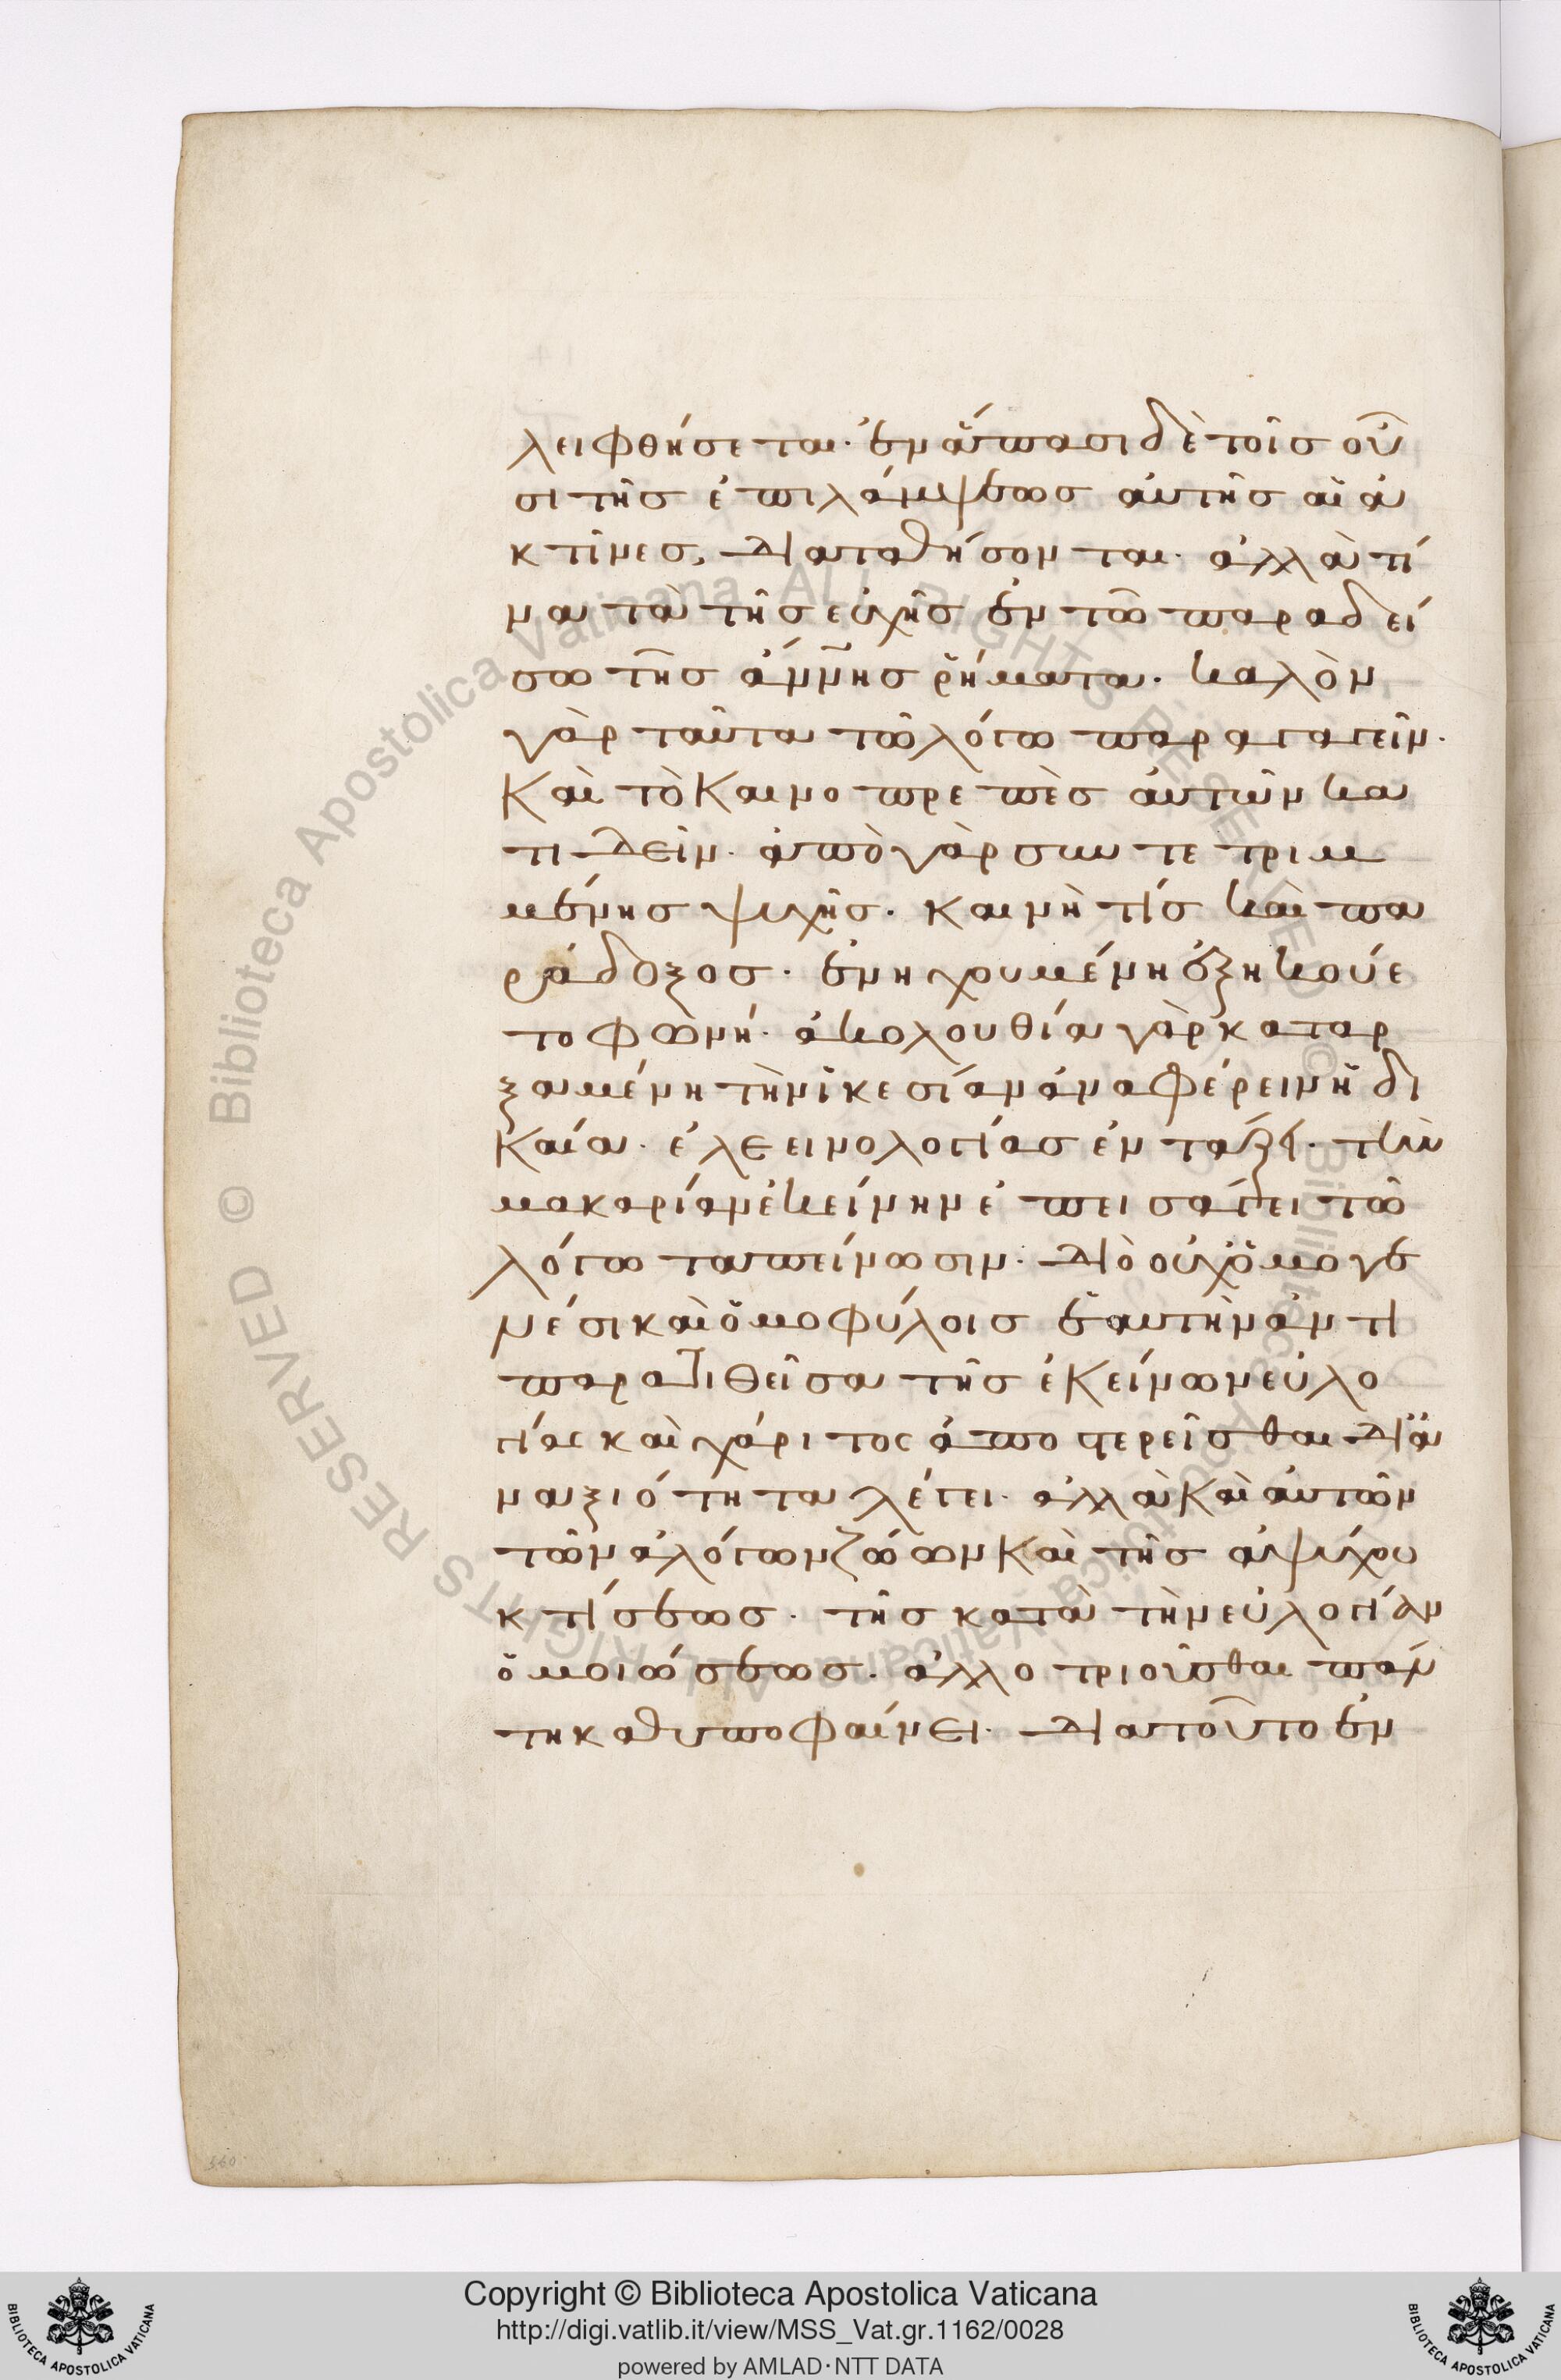 λειφθήσεται· ἐν ἅπασι δὲ τοῖς οὖ
σι τῆς ἐπιλάμψεως αὐτῆς αἱ ἀ
κτῖνες, διαταθήσονται· ἀλλὰ τί
να τὰ τῆς εὐχῆς ἐν τῶ παραδεί
σω τῆς ἄννης ῥήματα· καλὸν
γὰρ ταῦτα τῶ λόγω παραγαγεῖν·
καὶ τὸ καινοπρεπὲς αὐτῶν κα
τιδεῖν· ἀπὸ γὰρ συντετριμ
μένης ψυχῆς· καινὴ τίς καὶ πα
ράδοξος· ἐνηχουμένη ἐξηκούε
το φωνή· ἀκολουθία γὰρ καταρ
ξαμένη τὴν ἱκεσίαν ἀναφέρειν ἢ δι
καία· ἐλεεινολογίας ἐν τάξει· τὴν
μακαρίαν ἐκείνην ἐπεισάγει τῶ
λόγω ταπείνωσιν· διὸ οὐχ ὁμογε
νέσι καὶ ὁμοφύλοις ἑαυτὴν ἀντι
παρατιθεῖσα τῆς ἐκείνων εὐλο
γίας καὶ χάριτος ἀποστερεῖσθαι δι' ἀ
ναξιότητα λέγει· ἀλλὰ καὶ αὐτῶν
τῶν ἀλόγων ζώων καὶ τῆς ἀψύχου
κτίσεως· τῆς κατὰ τὴν εὐλογίαν
ὁμοιώσεως· ἀλλοτριοῦσθαι πάν
τη καθυποφαίνει· διατοῦτο ἐν
Copyright © Biblioteca Apostolica Vaticana
http://digi.vatlib.it/view/MSS_Vat.gr.1162/0028
powered by AMLAD·NTT DATA
BIBLIOTECA APOSTOLICA VATICANA
BIBLIOTECA APOSTOLICA VATICANA